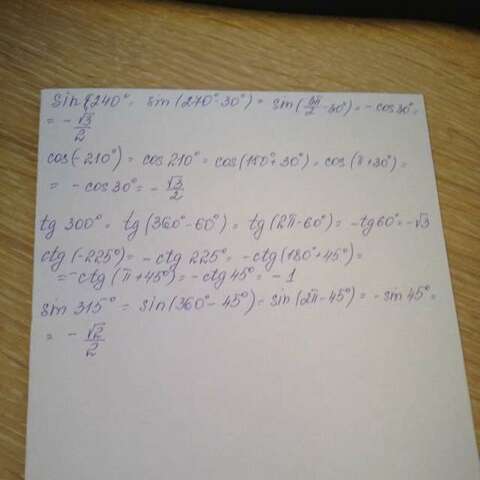 sin 240° = sin(270°-30°) = sin(3π/2 - 30°) = - cos 30° =
= - √3/2
cos(-210°) = cos 210° = cos(180°+30°) = cos(π+30°) =
= - cos 30° = - √3/2
tg 300° = tg(360°-60°) = tg(2π-60°) = -tg60° = -√3
ctg(-225°) = -ctg 225° = -ctg(180°+45°) =
= -ctg(π+45°) = -ctg 45° = -1
sin 315° = sin(360°-45°) = sin(2π-45°) = -sin 45° =
= - √2/2